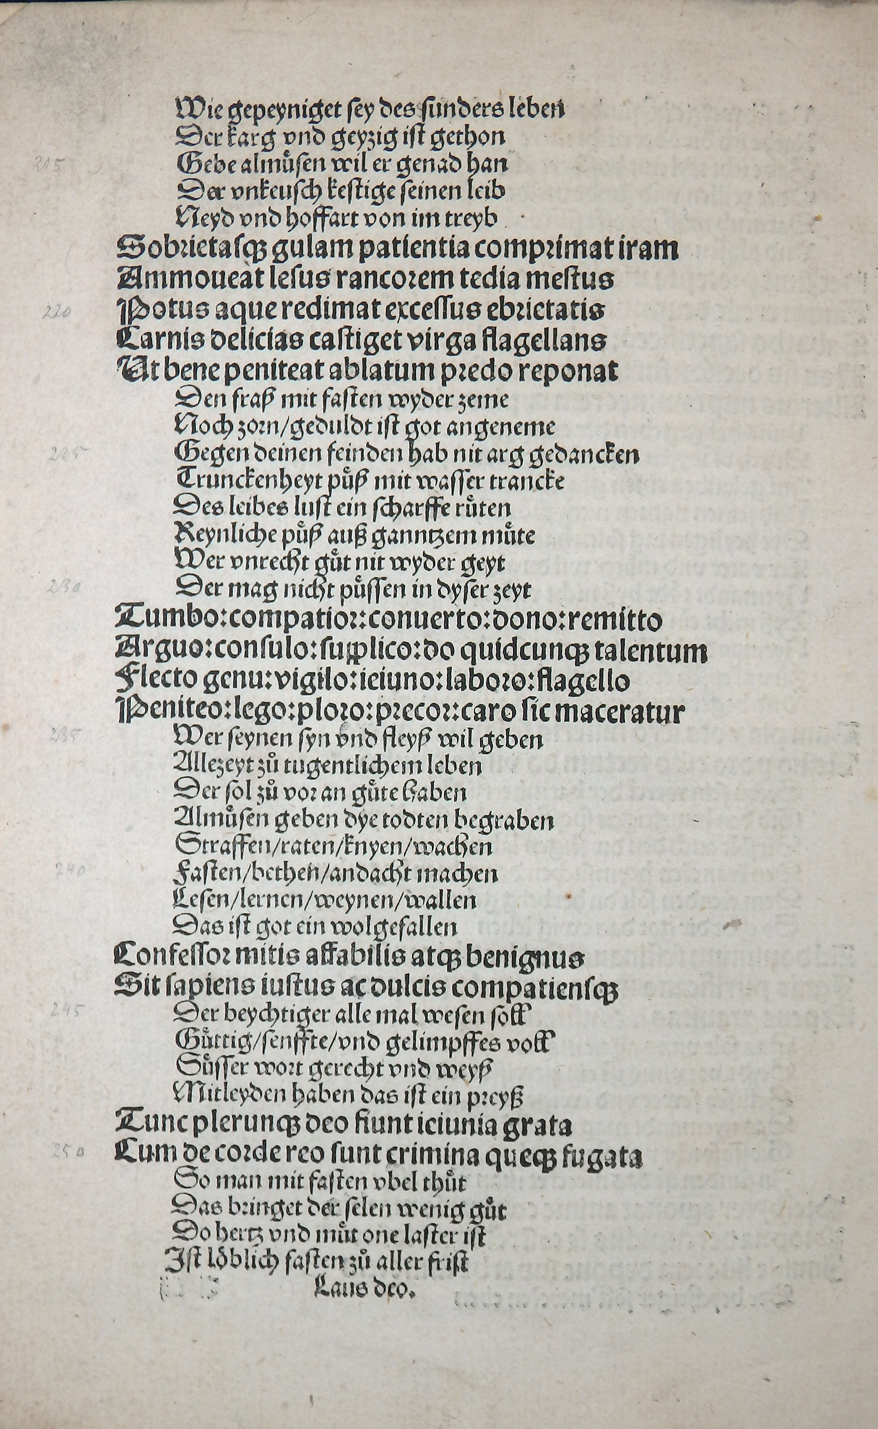 Wie gepeyniget sey des sunders leben
Der karg vnd geyzig ist gethon
215 Gebe almůsen wil er genad han
Der vnkeusch kestige seinen leib
Neyd vnd hoffart von im treyb
Sobrietasqꝫ gulam patientia comprimat iram
Ammoueat lesus rancorem tedia mestus
220 Potus aque redimat excessus ebrietatis
Carnis delicias castiget virga flagellans
Ut bene peniteat ablatum predo reponat
Den fraß mit fasten wyder zeme
Noch zorn/geduldt ist got angeneme
225 Gegen deinen feinden hab nit arg gedancken
Trunckenheyt půß mit wasser trancke
Des leibes lust ein scharffe růten
Reynliche půß auß ganntzem můte
Wer vnrecht gůt nit wyder geyt
230 Der mag nicht půssen in dyser zeyt
Tumbo:compatior:conuerto:dono:remitto
Arguo:consulo:supplico:do quidcunqꝫ talentum
Flecto genu:vigilo:ieiuno:laboro:flagello
Peniteo:lego:ploro:precor:caro sic maceratur
235 Wer seynen syn vnd fleyß wil geben
Allezeyt zů tugentlichem leben
Der sol zů vor an gůte haben
Almůsen geben dye todten begraben
Straffen/raten/knyen/wachen
240 Fasten/bethen/andacht machen
Lesen/lernen/weynen/wallen
Das ist got ein wolgefallen
Confessor mitis affabilis atqꝫ benignus
Sit sapiens iustus ac dulcis compatiensqꝫ
245 Der beychtiger alle mal wesen soll
Gůttig/senffte/vnd gelimpffes voll
Sůsser wort gerecht vnd weyß
Mitleyden haben das ist ein preyß
Tunc plerunqꝫ deo fiunt ieiunia grata
250 Cum de corde reo sunt crimina queqꝫ fugata
So man mit fasten vbel thůt
Das bringet der selen wenig gůt
Do hertz vnd můt one laster ist
Ist lôblich fasten zů aller frist
Laus deo.